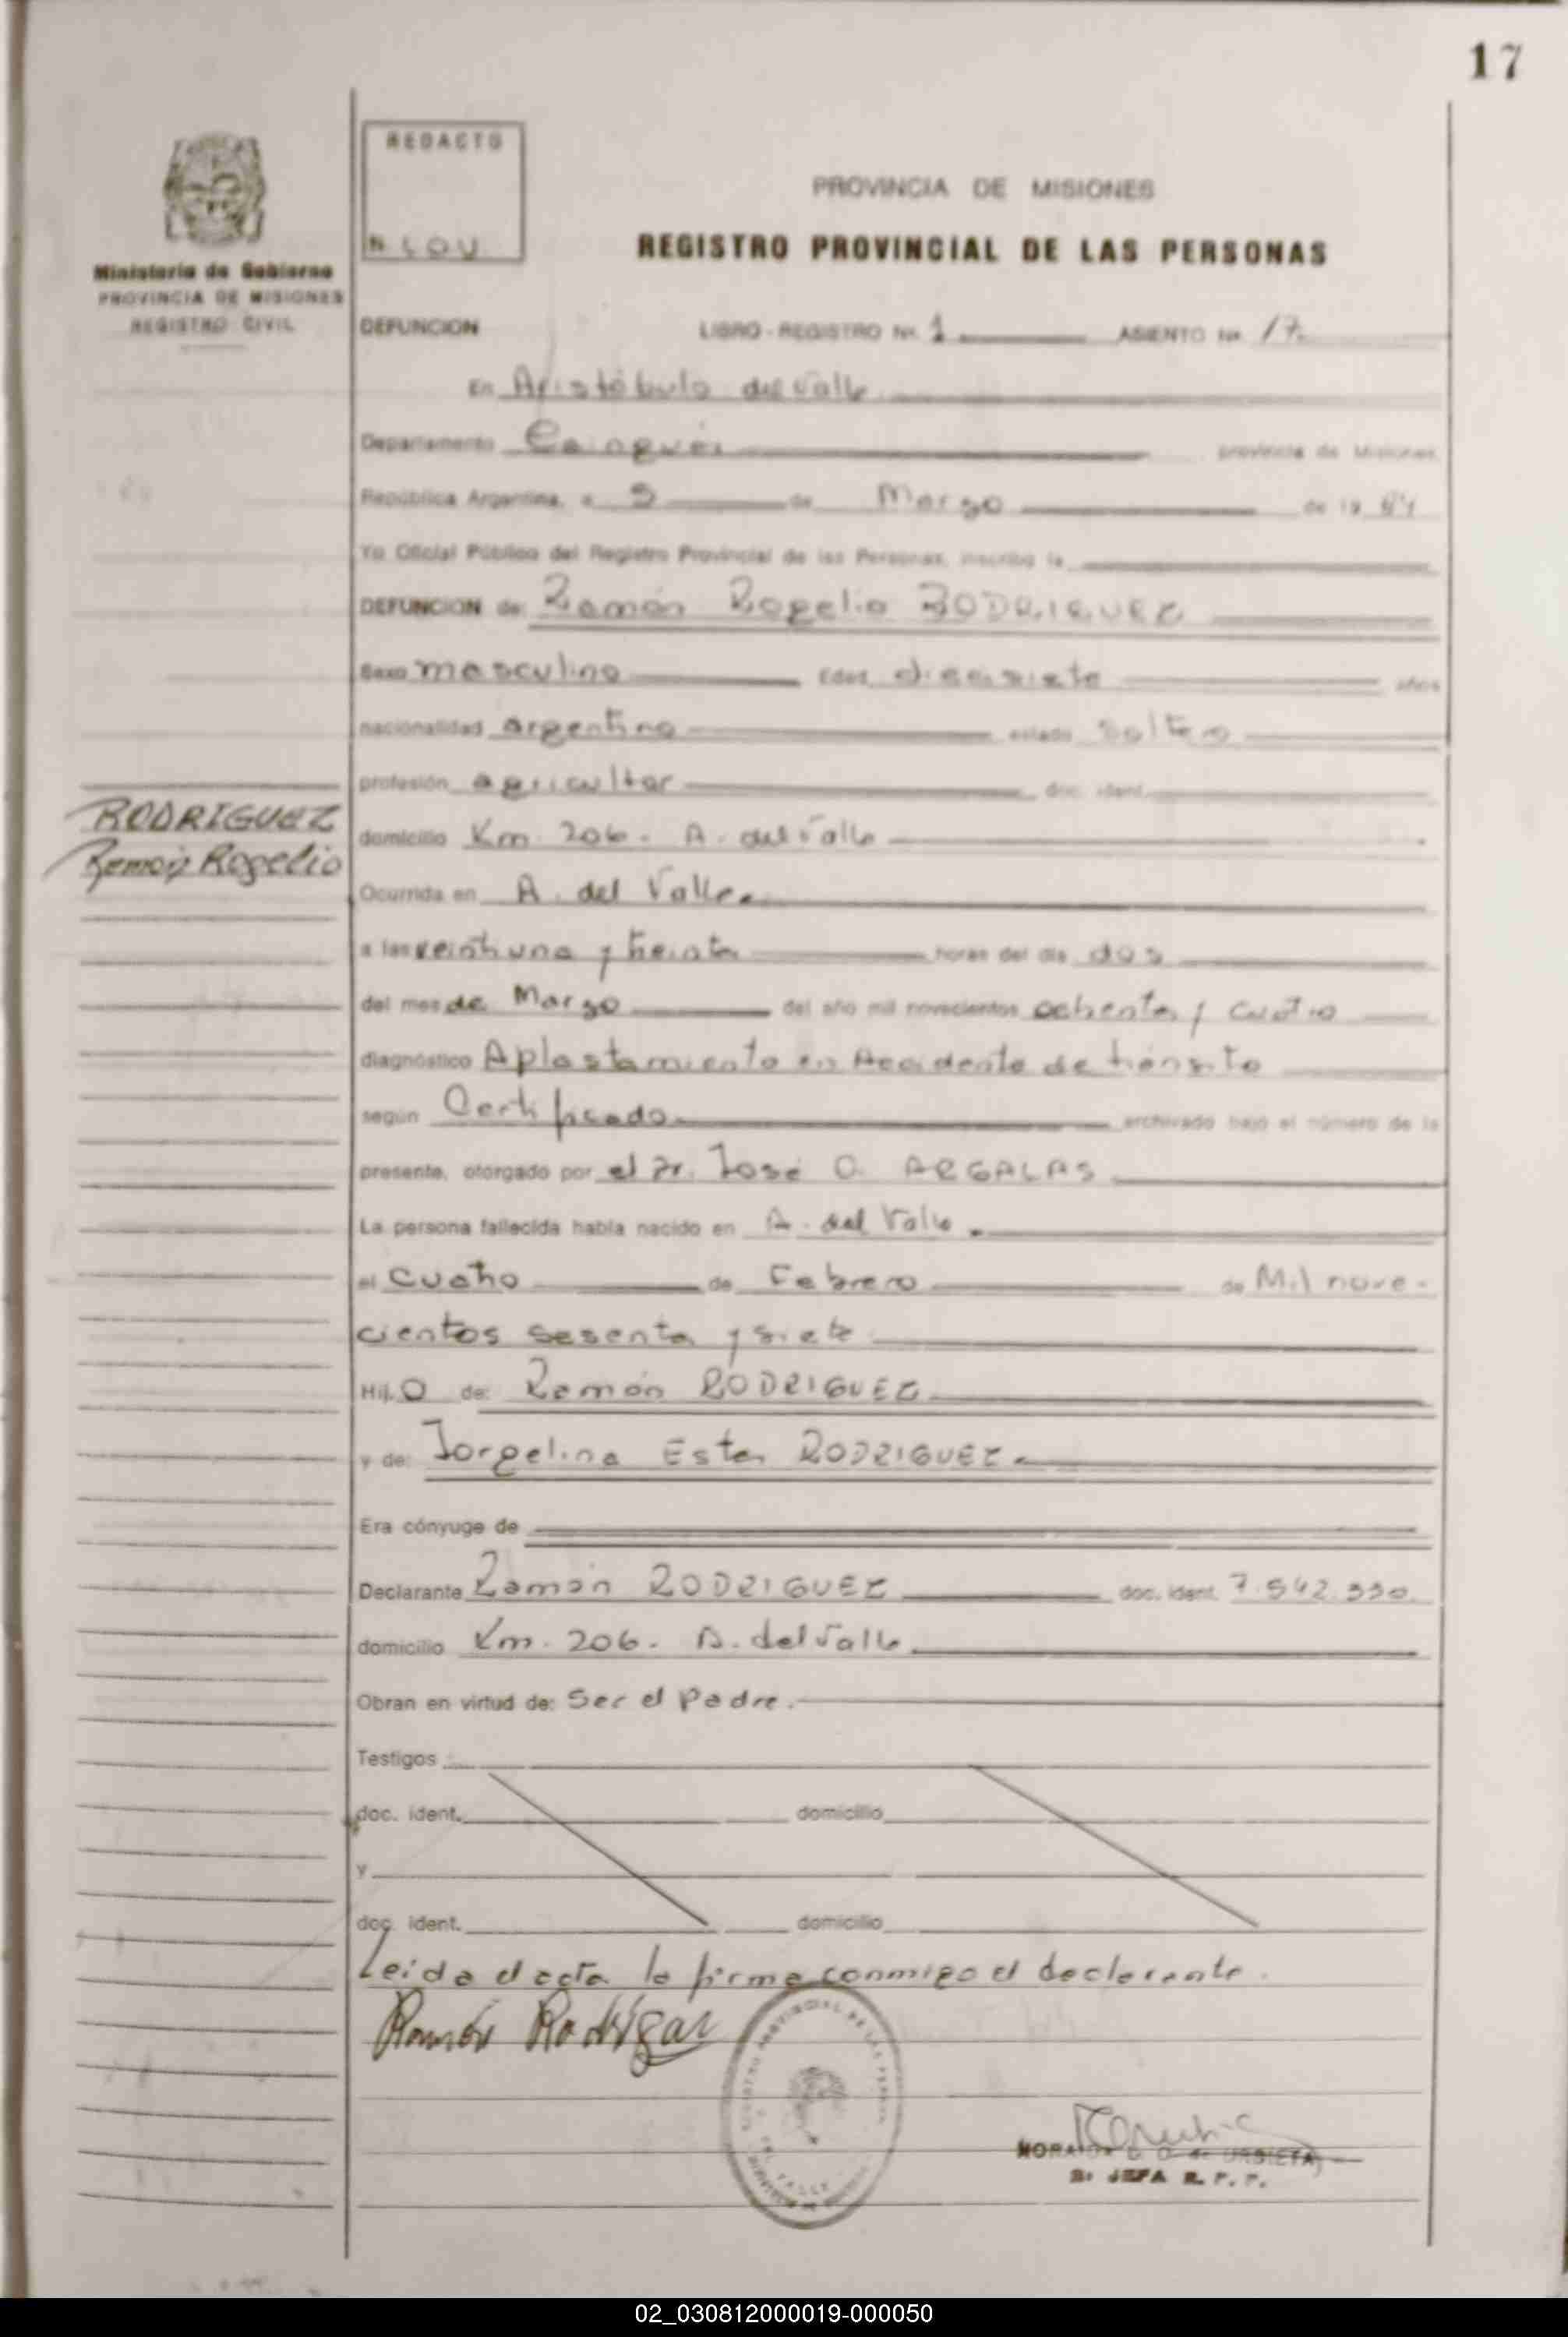 17
REDACTO
N LOU
Ministerio de Gobierno
PROVINCIA DE MISIONES
REGISTRO CIVIL
PROVINCIA DE MISIONES
REGISTRO PROVINCIAL DE LAS PERSONAS
DEFUNCION LIBRO-REGISTRO Nº. 1 ASIENTO Nº. 17.
En Aristóbulo del Valle
Departamento Cainguás provincia de Misiones,
República Argentina, a 5 de Marzo de 19 84
Yo Oficial Público del Registro Provincial de las Personas, inscribo la
DEFUNCION de: Ramón Rogelio RODRIGUEZ
Sexo masculino Edad diecisiete años
nacionalidad argentina estado soltero
profesión agricultor doc. ident.
RODRIGUEZ
Ramón Rogelio
domicilio Km. 206. A. del Valle
Ocurrida en A. del Valle.
a las veintiuna y treinta horas del día dos
del mes de Marzo del año mil novecientos ochenta y cuatro
diagnóstico Aplastamiento en Accidente de tránsito
según Certificado archivado bajo el número de la
presente, otorgado por el Dr. José O. ARGALAS
La persona fallecida había nacido en A. del Valle.
el cuatro de Febrero de Mil nove-
cientos sesenta y siete
Hij O de: Ramón RODRIGUEZ
y de: Jorgelina Ester RODRIGUEZ.
Era cónyuge de
Declarante Ramón RODRIGUEZ doc. ident. 7.542.330
domicilio Km. 206. A. del Valle
Obran en virtud de: Ser el Padre.
Testigos
doc. ident. domicilio
y
doc. ident. domicilio
Leida el acta la firma conmigo el declarante.
Ramón Rodrigez
REGISTRO PROVINCIAL DE LAS PERSONAS
DEL VALLE
de URBIETA
JEFA R. P. P.
02_030812000019-000050